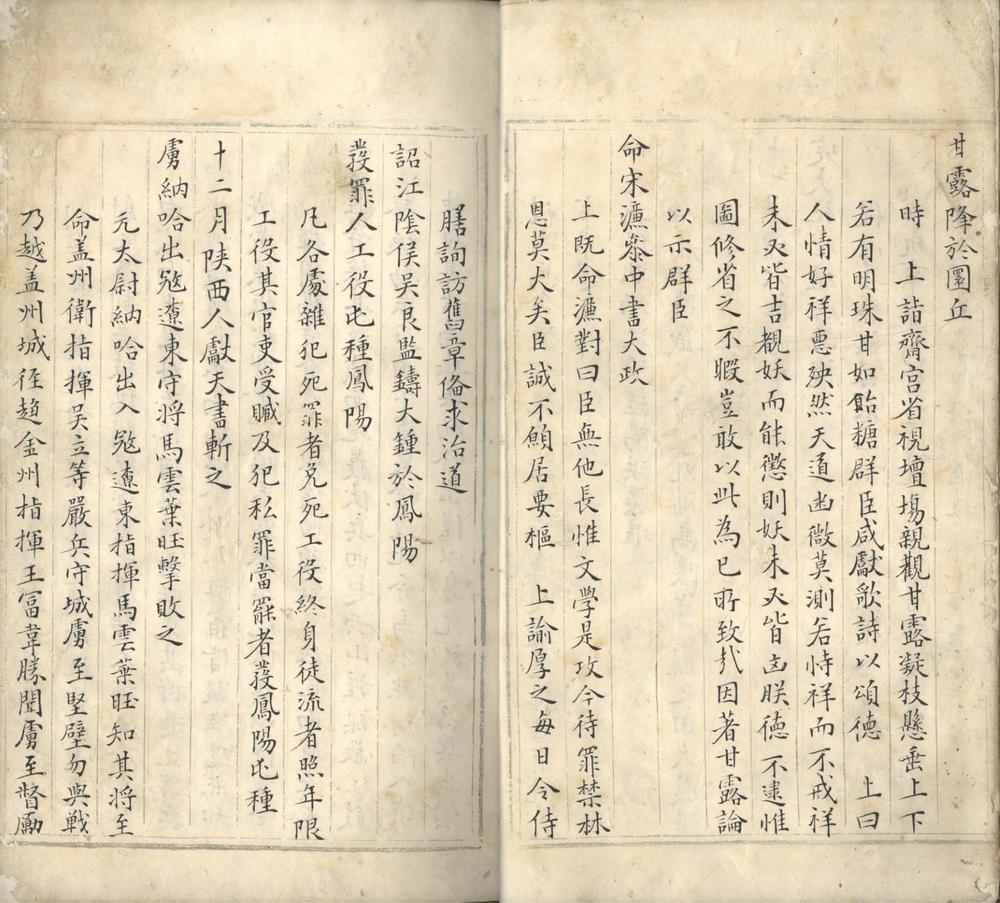 甘露降於圜丘
時　上詣齋宮省視壇塲親觀甘露凝枝懸垂上下
若有明珠甘如飴糖群臣咸獻歌詩以頌德　上曰
人情好祥惡殃然天道幽微莫測若恃祥而不戒祥
未必皆吉覩妖而能懲則妖未必皆凶朕德不逮惟
圖修省之不暇豈敢以此為已所致㦲因著甘露論
以示群臣
命宋濂叅中書大政
上既命濂對曰臣無他長惟文學是攻今待罪禁林
恩莫大矣臣誠不願居要樞　上諭厚之每日令侍
膳詢訪舊章俻求治道
詔江陰侯吳良監鑄大鍾於鳳陽
發罪人工役屯種鳳陽
凡各處雜犯死罪者免死工役終身徒流者照年限
工役其官吏受贓及犯私罪當罷者發鳳陽屯種
十二月陝西人獻天書斬之
虜納哈出宼遼東守将馬雲葉旺擊敗之
元太尉納哈出入宼遼東指揮馬雲葉旺知其将至
命盖州衛指揮吴立等嚴兵守城虜至堅壁勿與戰
乃越盖州城徑趨金州指揮王冨韋勝聞虜至督勵